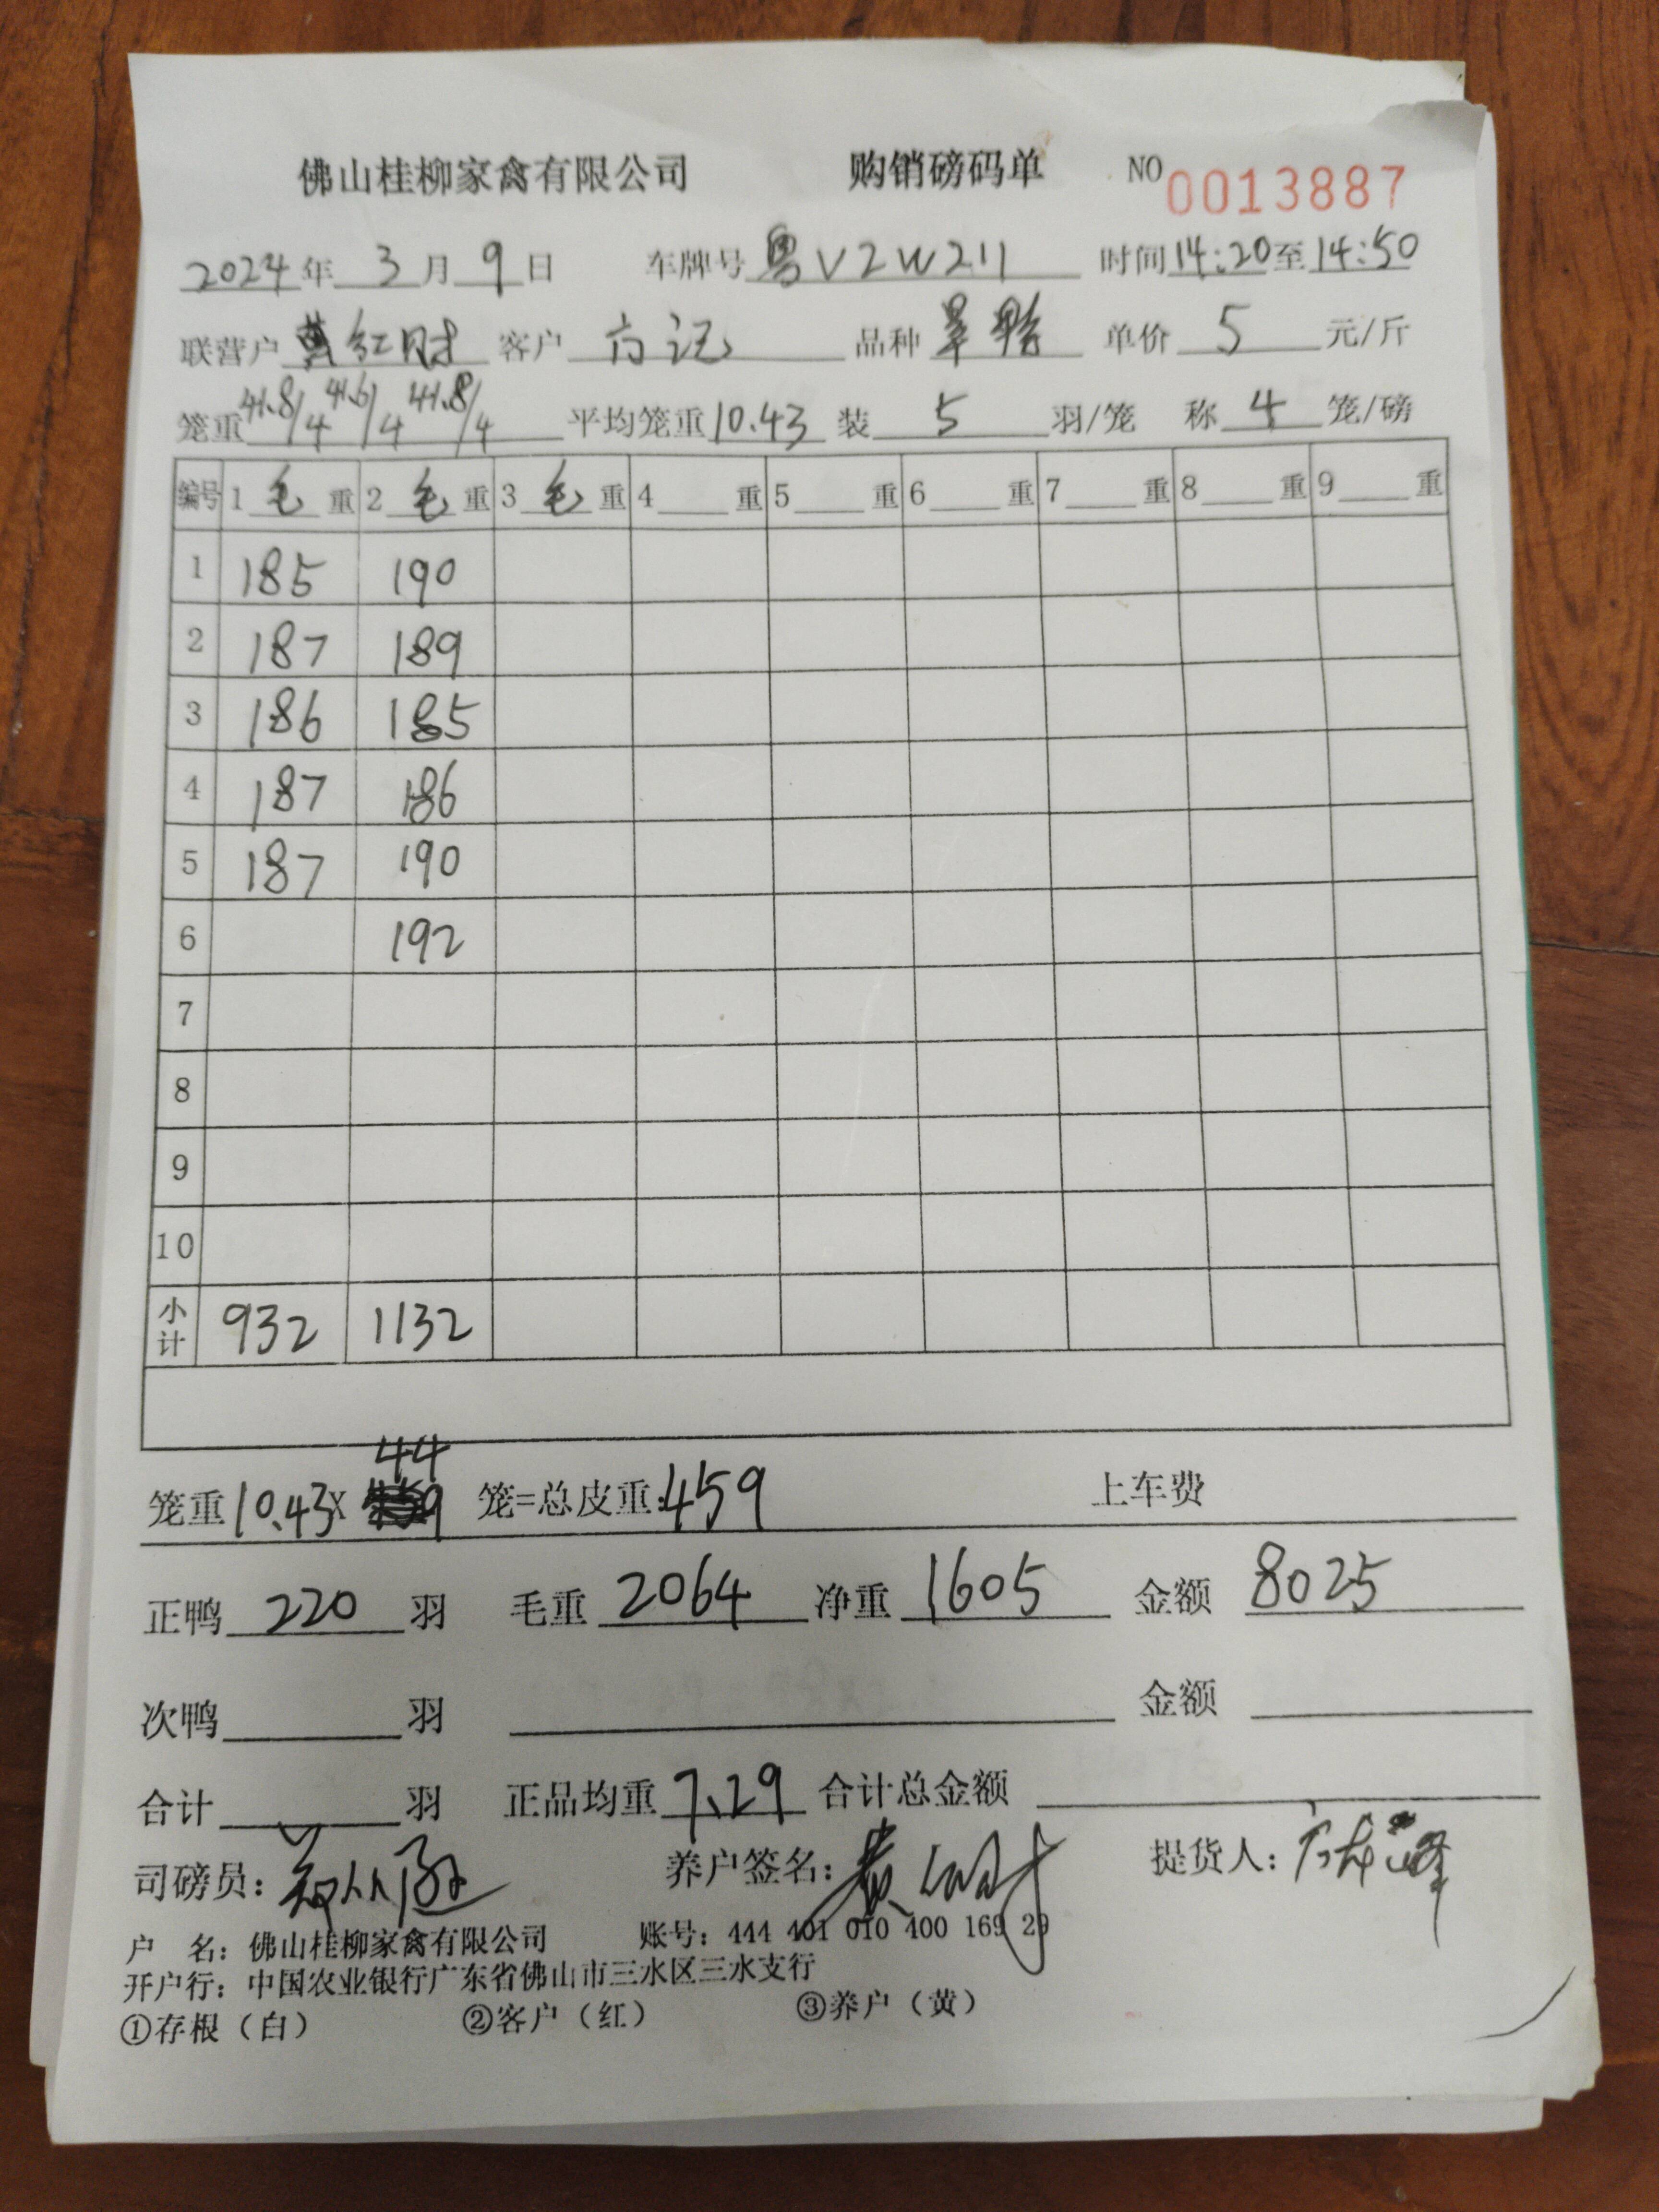 佛山桂柳家禽有限公司 购销磅码单 NO 0013887
2024年 3月 9日 车牌号 粤V2W211 时间 14:20至14:50
联营户 黄红财 客户 方记 品种 单价 5 元/斤
笼重 41.8/4 41.6/4 41.8/4 平均笼重 10.43 装 5 羽/笼 称 4 笼/磅
编号 1 毛 重 2 毛 重 3 毛 重 4 重 5 重 6 重 7 重 8 重 9 重
1 185 190
2 187 189
3 186 185
4 187 186
5 187 190
6 192
7
8
9
10
小计 932 1132
笼重 10.43X 44 笼=总皮重: 459 上车费
正鸭 220 羽 毛重 2064 净重 1605 金额 8025
次鸭 羽 金额
合计 羽 正品均重 7.29 合计总金额
司磅员: 养户签名: 提货人:
户 名: 佛山桂柳家禽有限公司 账号: 444 401 010 400 169 29
开户行: 中国农业银行广东省佛山市三水区三水支行
①存根（白） ②客户（红） ③养户（黄）